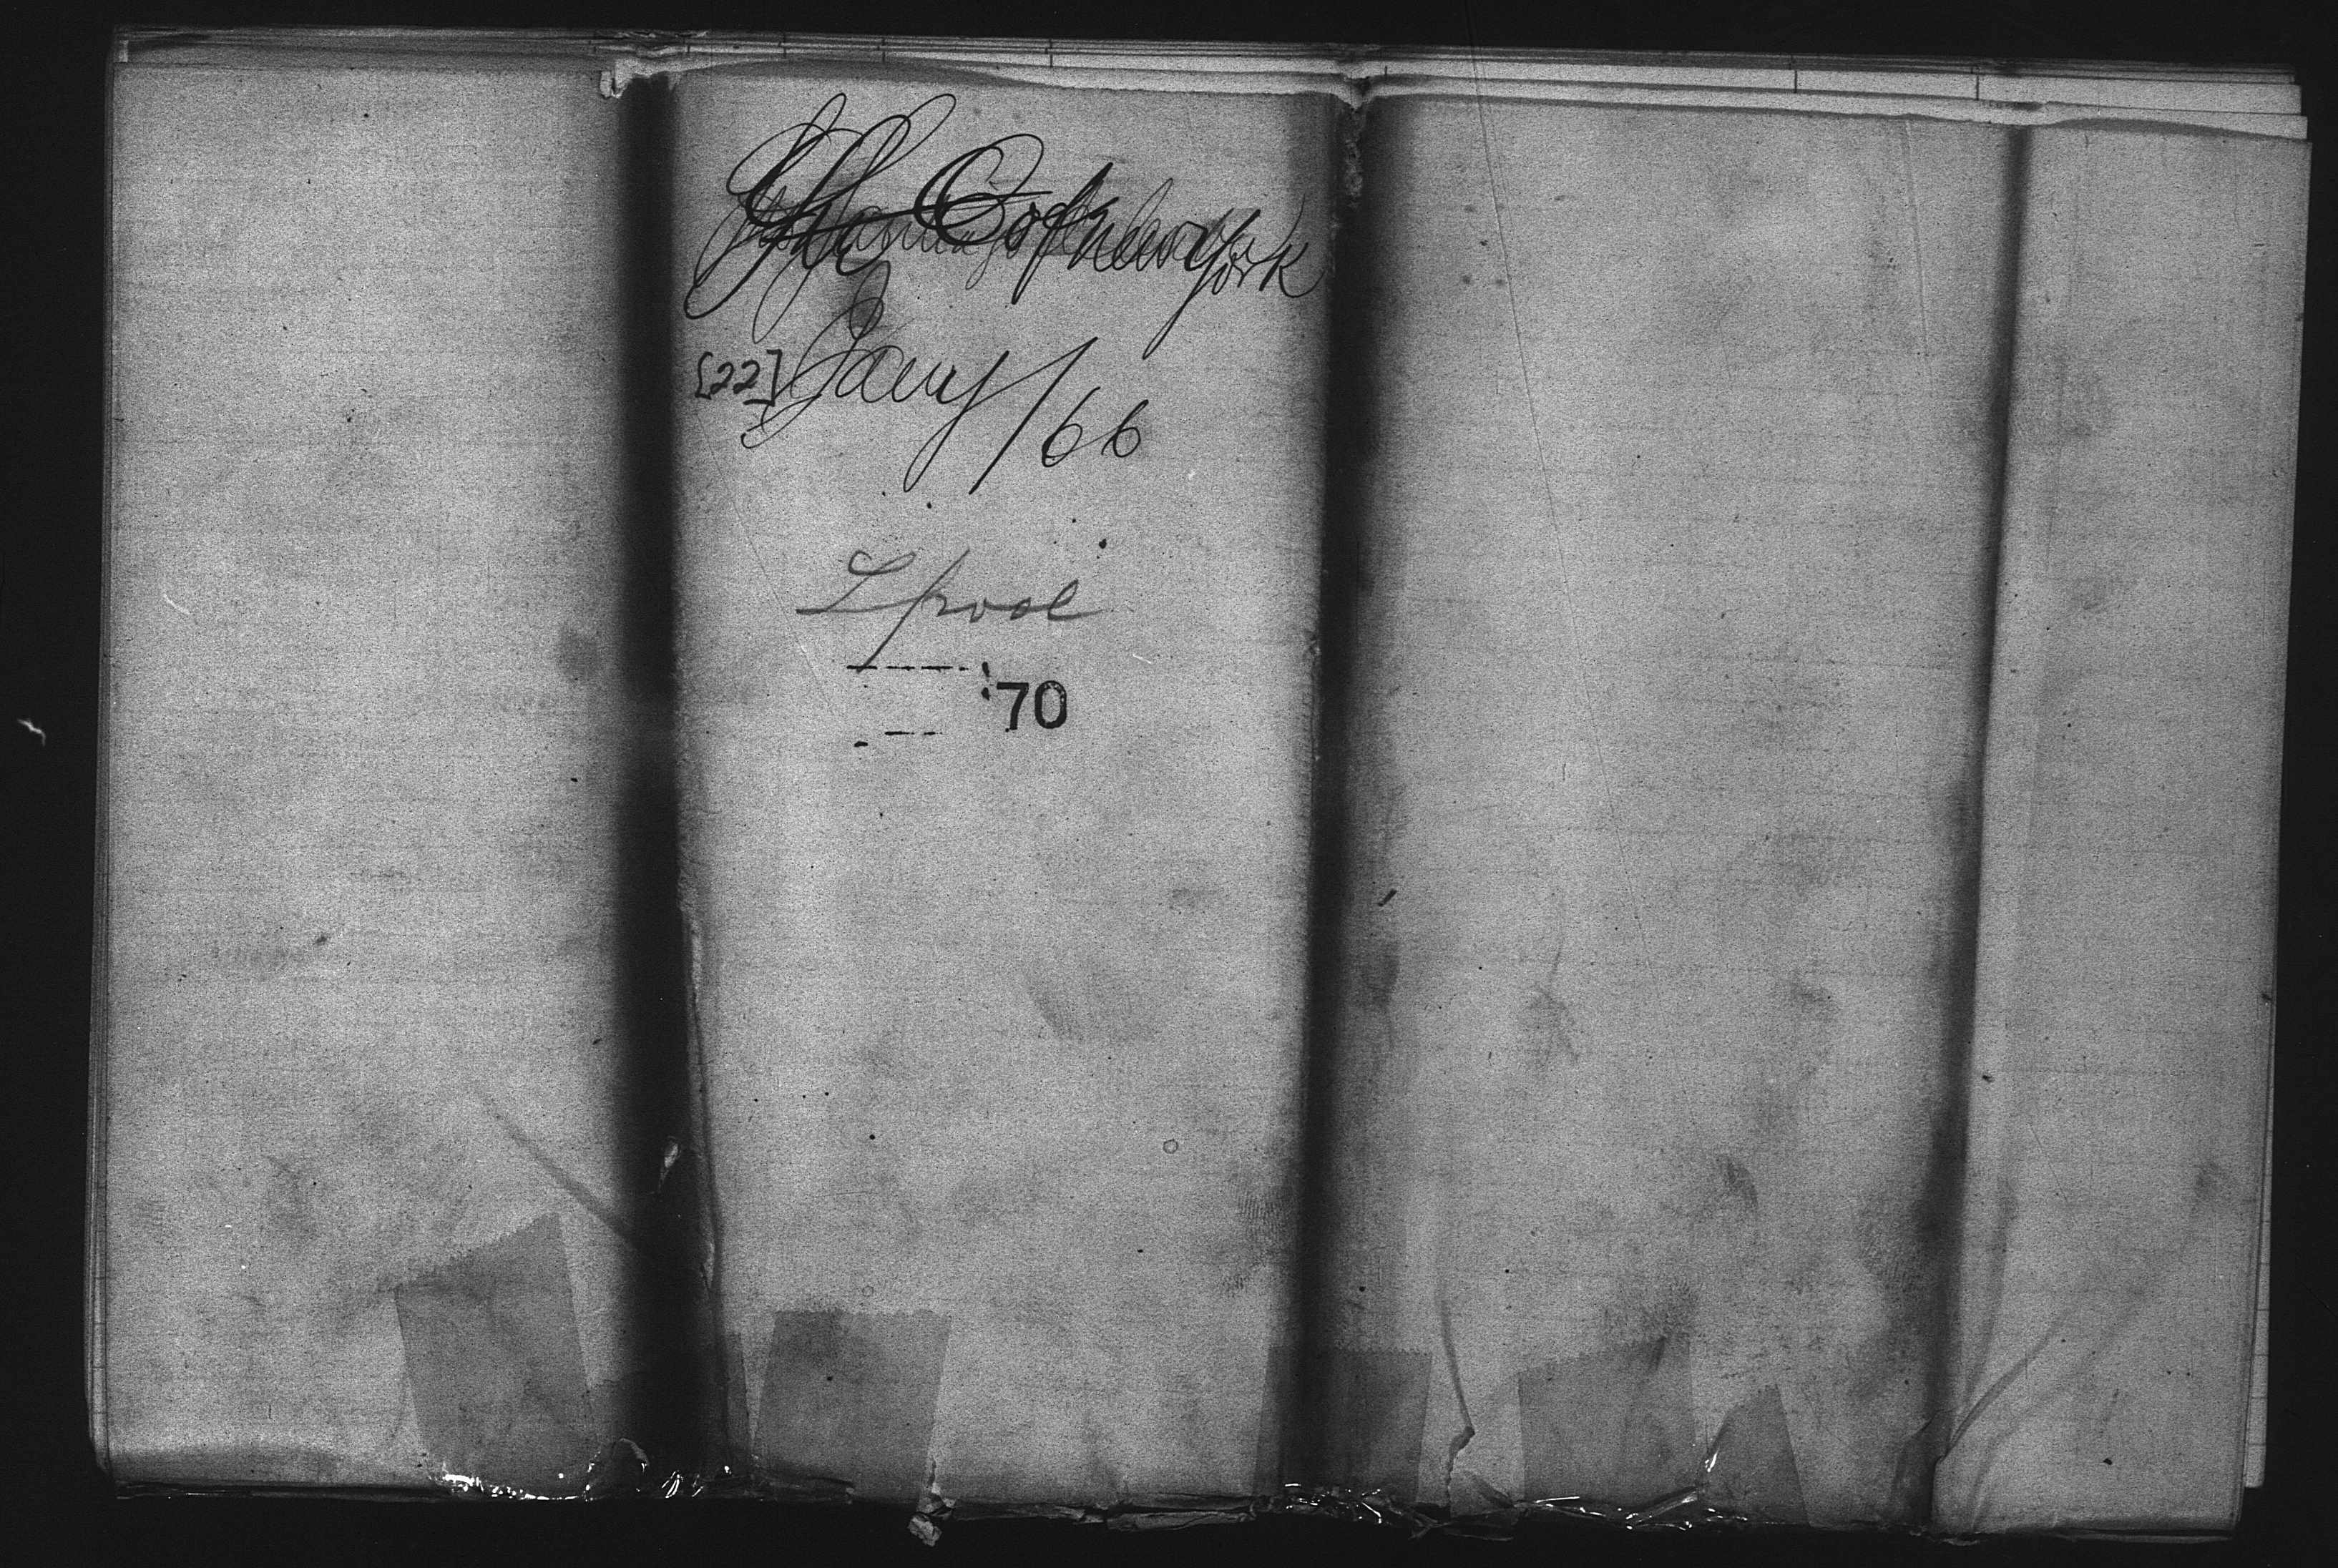 City of New York
[22] Jany/66
Lpool
70